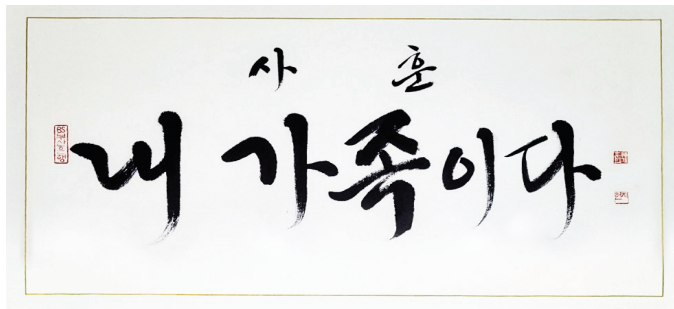 사 훈
내 가족이다